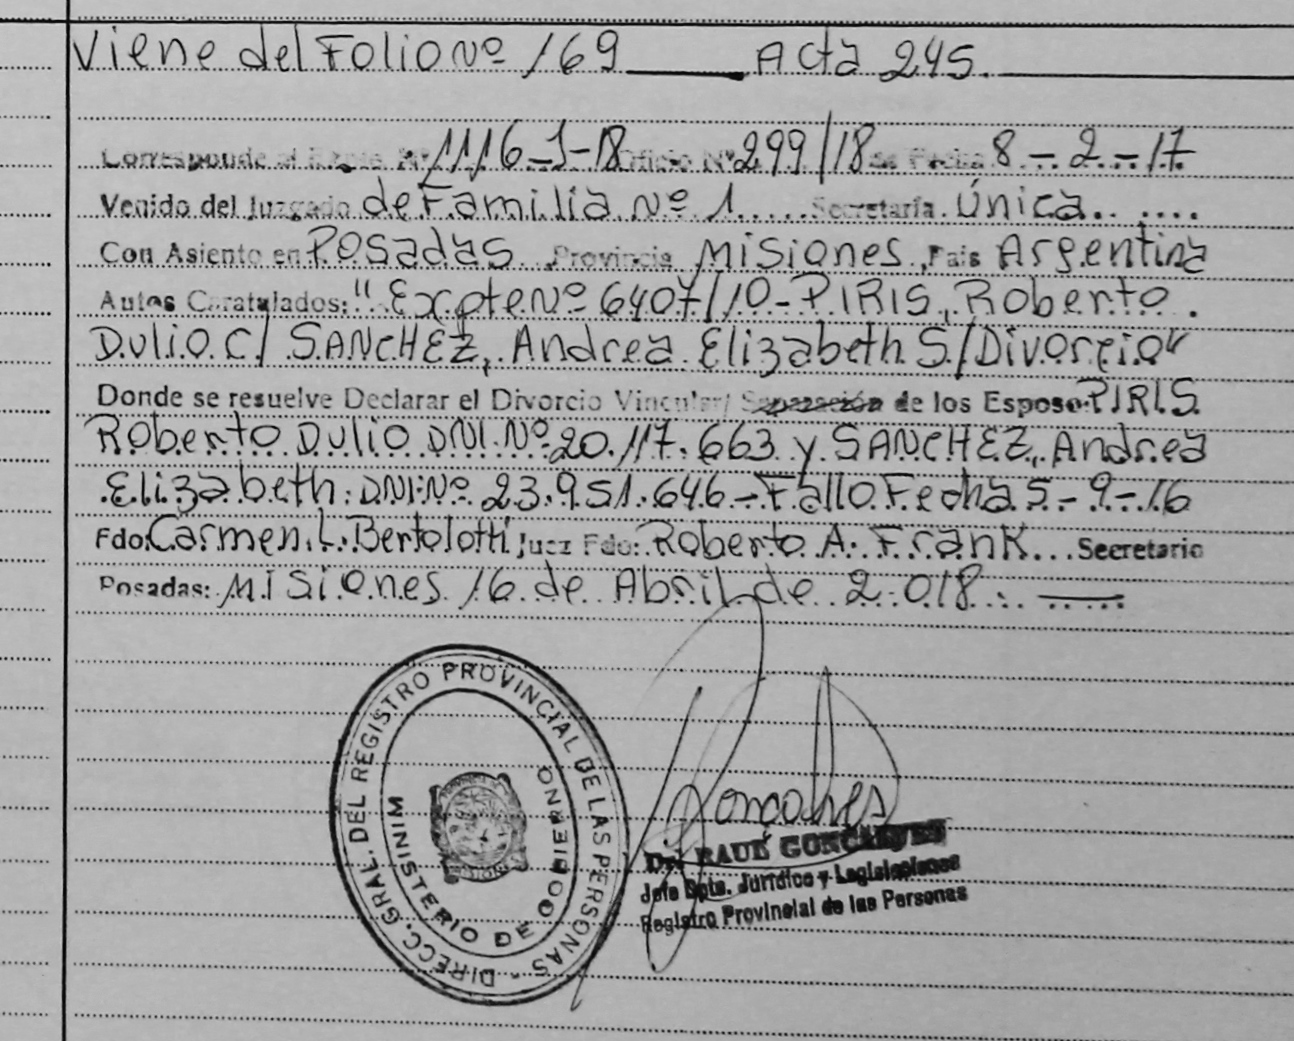 Viene del Folio Nº 169 Acta 245.
Corresponde al Expte. Nº 1116-J-18 Oficio Nº 299/18 de Fecha 8-2-17
Venido del Juzgado de Familia Nº 1 Secretaría Única
Con Asiento en Posadas Provincia Misiones, País Argentina
Autos Caratulados: "Expte Nº 6407/10-PIRIS, Roberto
Dulio C/ SANCHEZ, Andrea Elizabeth S/Divorcio"
Donde se resuelve Declarar el Divorcio Vincular/ Separación de los Esposo: PIRIS
Roberto Dulio DNI. Nº 20.117.663 y SANCHEZ, Andrea
Elizabeth. DNI: Nº 23.951.646- Fallo Fecha 5-9-16
Fdo: Carmen L. Bertolotti Juez Fdo: Roberto A. Frank Secretario
Posadas: Misiones 16 de Abril de 2.018.
DIRECC. GRAL. DEL REGISTRO PROVINCIAL DE LAS PERSONAS -
MINISTERIO DE GOBIERNO
MISIONES
Goncalves
Dr. RAUL GONCALVES
Jefe Dpto. Jurídico y Legislaciones
Registro Provincial de las Personas